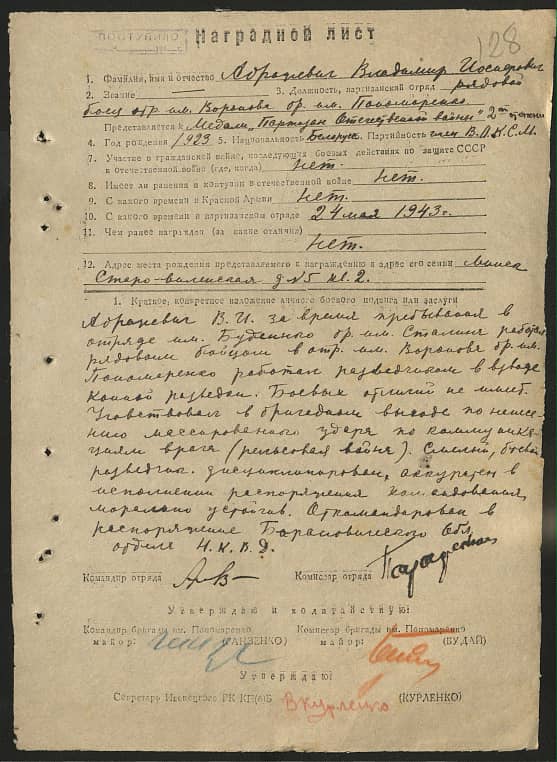 ПОСТУПИЛО
128
Наградной лист
1. Фамилия, имя и отчество Абрамевич Владимир Иосифович
2. Звание — 3. Должность, партизанский отряд рядовой
боец отр. им. Воронова бр. им. Пономаренко
Представляется к Медали „Партизан Отечественной войны" 2ой степени
4. Год рождения 1923 5. Национальность Белорус Партийность член В.Л.К.С.М.
7. Участие в гражданской войне, последующих боевых действиях по защите СССР
и Отечественной войне (где, когда) нет.
8. Имеет ли ранения и контузии в отечественной войне нет.
9. С какого времени в Красной Армии нет.
10. С какого времени в партизанском отряде 24 мая 1943г.
11. Чем ранее награжден (за какие отличия)
нет.
12. Адрес места рождения представляемого к награждению и адрес его семьи Минск
Старо-виленская д №5 кв. 2.
1. Краткое, конкретное изложение личного боевого подвига или заслуги
В.И. за время пребывания в
отряде им. Буденного бр. им. Сталина работал
рядовым бойцом в отр. им. Воронова бр. им.
Пономаренко работал разведчиком в взводе
конной разведки. Боевых отличий не имеет.
Участвовал в бригадном выходе по нанесе-
нию массированного удара по коммуника-
циям врага (рельсовая война). Смелый, боевой
разведчик. дисциплинирован, аккуратен в
исполнении распоряжения командования,
морально устойчив. Откомандирован в
распоряжение Барановического Обл.
отдела Н.К.В.Д.
Командир отряда Комиссар отряда
Утверждаю и ходатайствую:
Командир бригады им. Пономаренко Комиссар бригады им. Пономаренко
майор: майор: (БУДАЙ)
Утверждаю:
Секретарь Ивенецкого РК КП(б)Б В Курленко (КУРЛЕНКО)